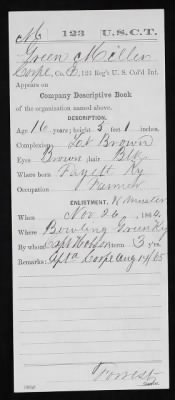 M | 123 | U.S.C.T.
Green Miller
Corpl, Co. E, 123 Reg't U. S. Col'd Inf.
Appears on
Company Descriptive Book
of the organization named above.
DESCRIPTION.
Age 16 years; height 5 feet 1 inches.
Complexion Lat Brown
Eyes Brown; hair Blk
Where born Fayett Ky
Occupation Farmer
ENLISTMENT.
When Nov 26, 1864.
Where Bowling Green Ky
By whom Capt term 3 y'rs.
Remarks: Corpl Aug 14/65
Forrest